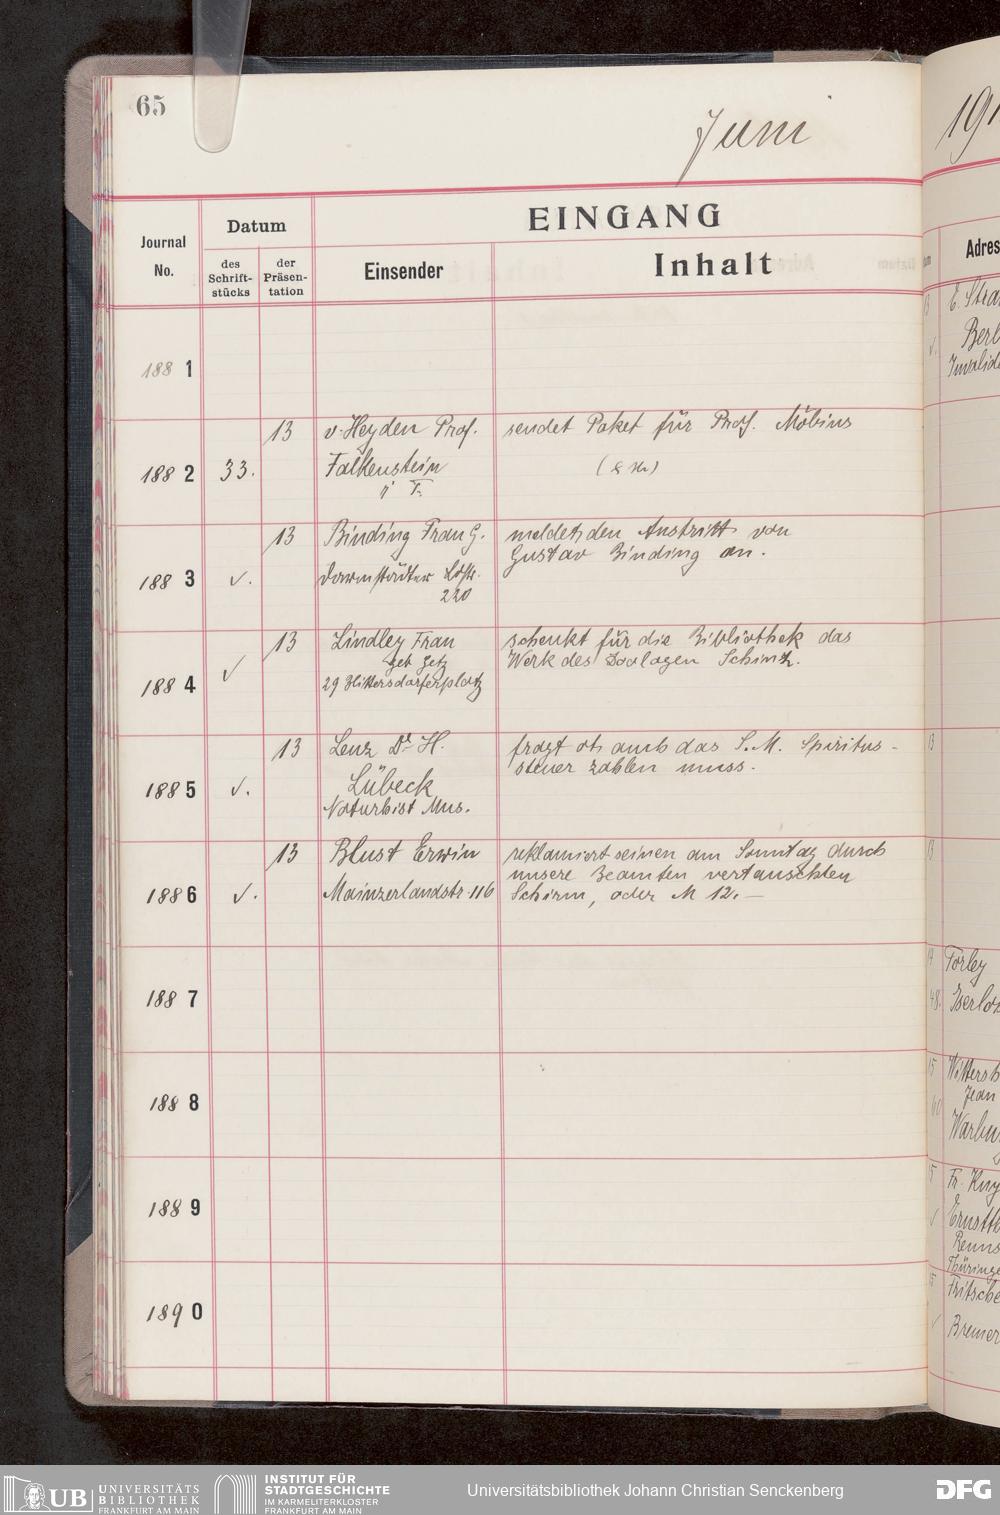 65
Juni
191
Journal
No.
Datum
des
Schrift-
stücks
der
Präsen-
tation
EINGANG
Einsender
Inhalt
Adres
1881
1882
33.
13
v. Heyden Prof.
Falkenstein
i T.
sendet Paket für Prof. Möbius
1883
✓.
13
Binding Frau G.
Darmstädter Ldstr.
220
meldet den Austritt von
Gustav Binding an.
1884
✓
13
Lindley Frau
geb Getz
29 Blittersdorferplatz
schenkt für die Bibliothek das
Werk des Zoologen Schintz.
1885
✓.
13
Lenz Dr H.
Lübeck
Naturhist Mus.
fragt ob auch das S.M. Spiritus-
steuer zahlen muss.
1886
✓.
13
Blust Erwin
Mainzerlandstr. 116
reklamiert seinen am Sonntag durch
unsere Beamten vertauschten
Schirm, oder M 12.—
1887
1888
1889
1890
13
E. Stra
Berl
Invalide
13
13
Torley
Iserlo
15
Witters
Jean
Warbu
Fr. Kny
Ernstt
Renns
Thüringe
Fritsche
Bremer
UB
UNIVERSITÄTS
BIBLIOTHEK
FRANKFURT AM MAIN
INSTITUT FÜR
STADTGESCHICHTE
IM KARMELITERKLOSTER
FRANKFURT AM MAIN
Universitätsbibliothek Johann Christian Senckenberg
DFG